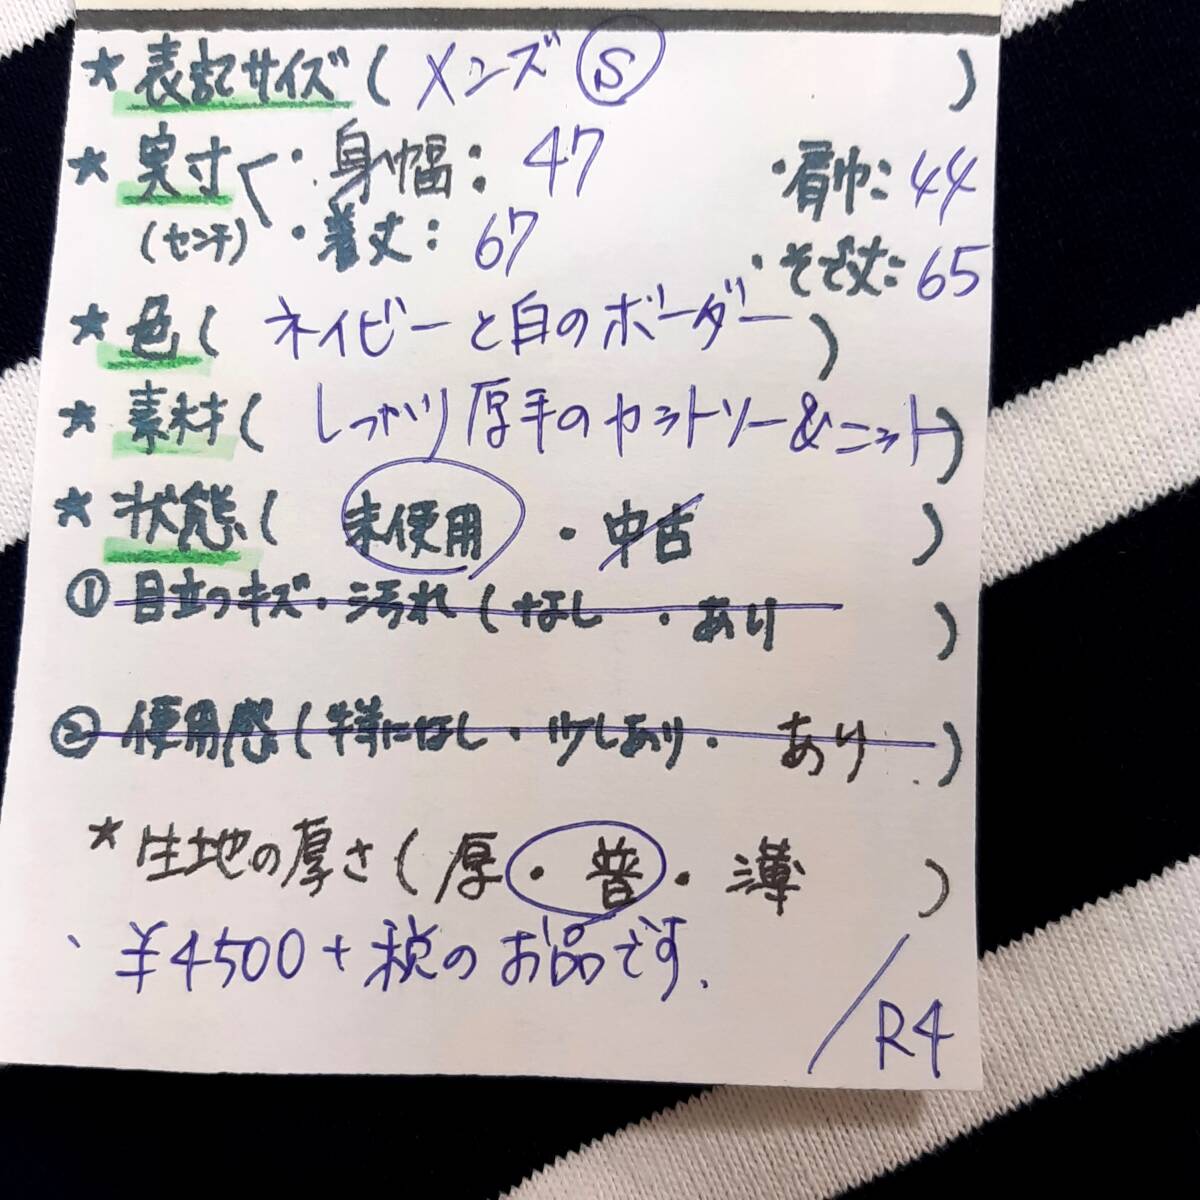 ★表記サイズ( メンズ Ⓢ )
★実寸 ・身幅: 47 ・肩巾: 44
(センチ) ・着丈: 67 ・そで丈: 65
★色( ネイビーと白のボーダー )
★素材( しっかり厚手のカットソー&ニット)
★状態( 未使用 ・ 中古 )
① 目立つキズ・汚れ(なし ・あり )
② 使用感(特になし・少しあり・ あり )
★生地の厚さ(厚・普・薄 )
、¥4500+税のお品です.
/R4